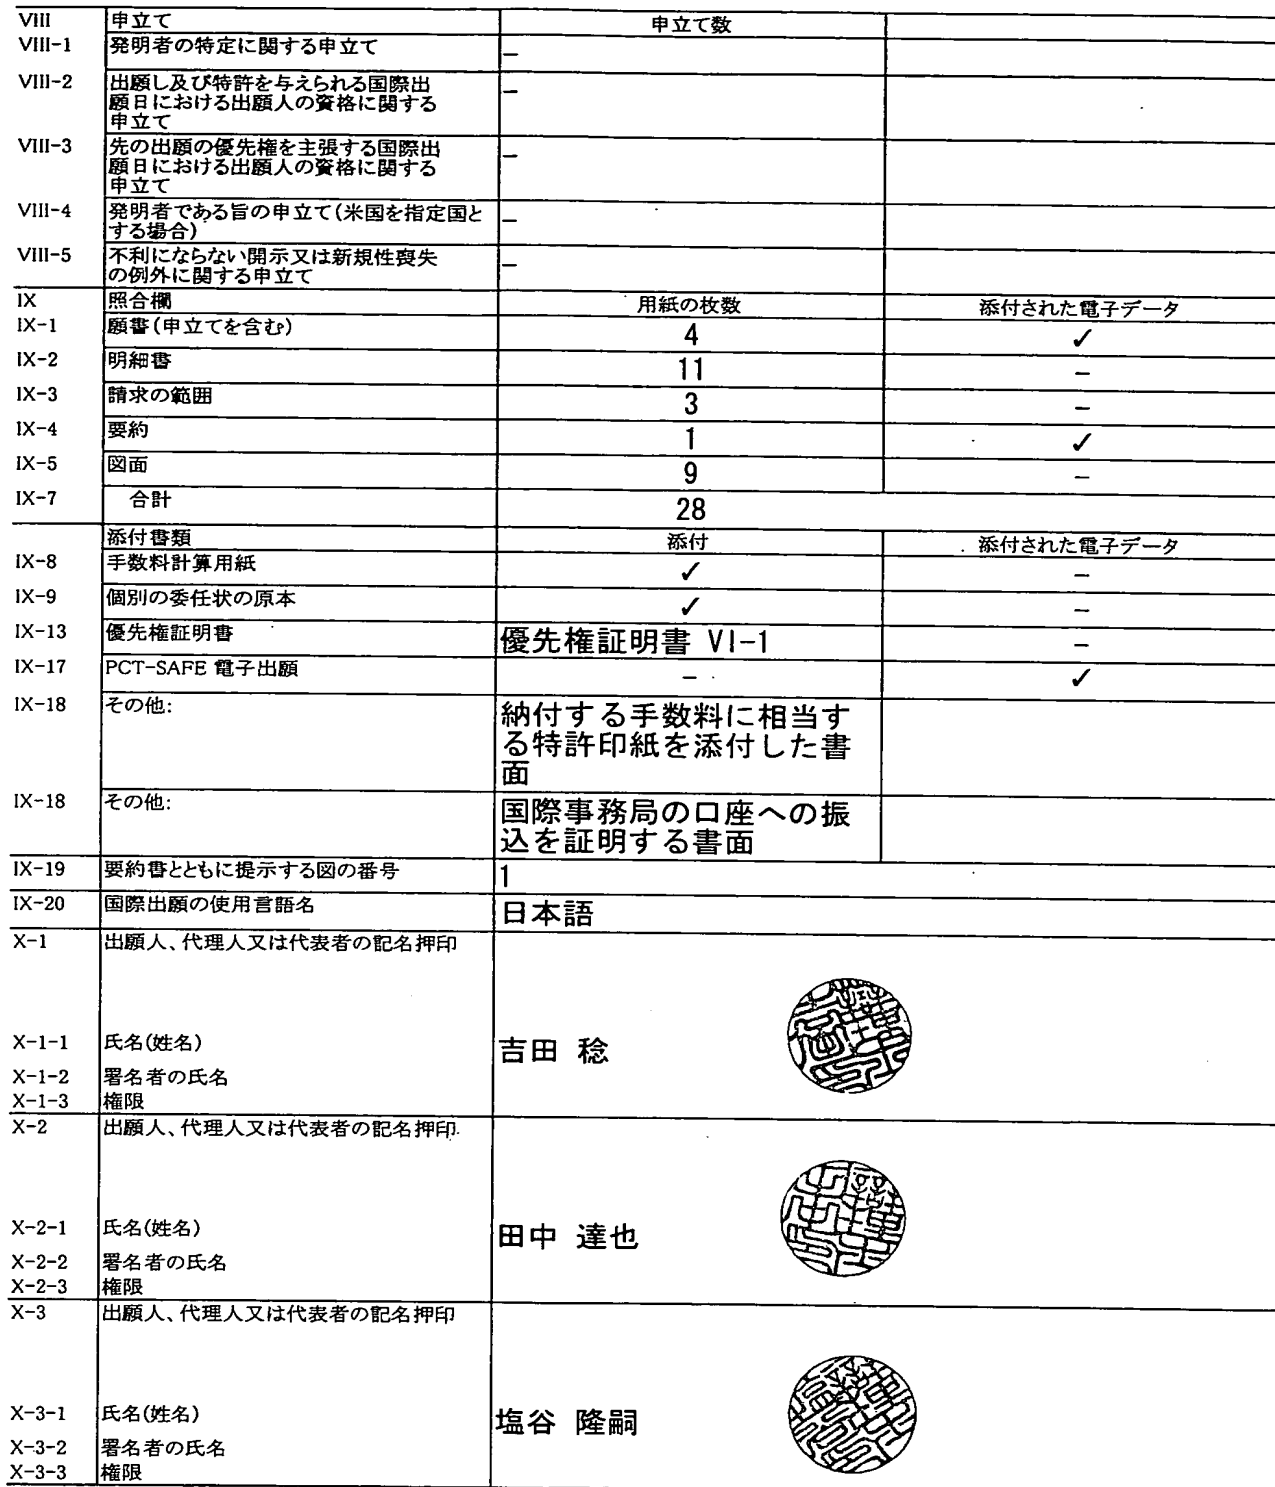 VIII 申立て 申立て数
VIII-1 発明者の特定に関する申立て -
VIII-2 出願し及び特許を与えられる国際出 -
願日における出願人の資格に関する
申立て
VIII-3 先の出願の優先権を主張する国際出 -
願日における出願人の資格に関する
申立て
VIII-4 発明者である旨の申立て(米国を指定国と -
する場合)
VIII-5 不利にならない開示又は新規性喪失 -
の例外に関する申立て
IX 照合欄 用紙の枚数 添付された電子データ
IX-1 願書(申立てを含む) 4 ✓
IX-2 明細書 11 -
IX-3 請求の範囲 3 -
IX-4 要約 1 ✓
IX-5 図面 9 -
IX-7 合計 28
添付書類 添付 添付された電子データ
IX-8 手数料計算用紙 ✓ -
IX-9 個別の委任状の原本 ✓ -
IX-13 優先権証明書 優先権証明書 VI-1 -
IX-17 PCT-SAFE 電子出願 - ✓
IX-18 その他: 納付する手数料に相当す
る特許印紙を添付した書
面
IX-18 その他: 国際事務局の口座への振
込を証明する書面
IX-19 要約書とともに提示する図の番号 1
IX-20 国際出願の使用言語名 日本語
X-1 出願人、代理人又は代表者の記名押印
X-1-1 氏名(姓名) 吉田 稔
X-1-2 署名者の氏名
X-1-3 権限
X-2 出願人、代理人又は代表者の記名押印
X-2-1 氏名(姓名) 田中 達也
X-2-2 署名者の氏名
X-2-3 権限
X-3 出願人、代理人又は代表者の記名押印
X-3-1 氏名(姓名) 塩谷 隆嗣
X-3-2 署名者の氏名
X-3-3 権限